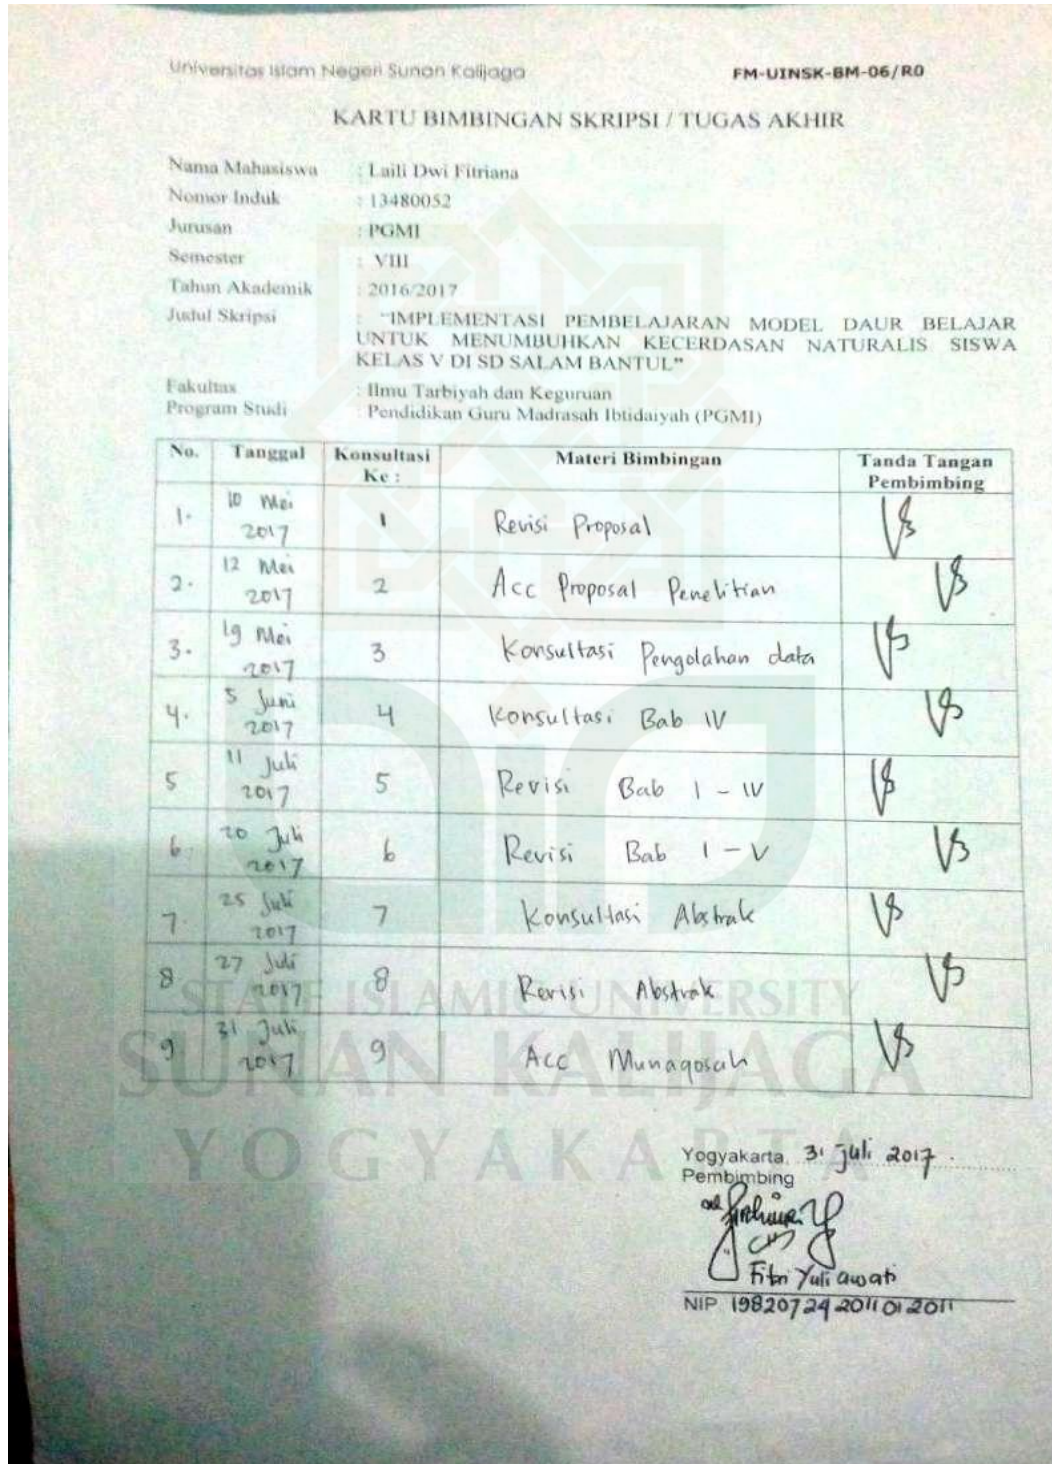 Universitas Islam Negeri Sunan Kalijaga FM-UINSK-BM-06/R0
KARTU BIMBINGAN SKRIPSI / TUGAS AKHIR
Nama Mahasiswa : Laili Dwi Fitriana
Nomor Induk : 13480052
Jurusan : PGMI
Semester : VIII
Tahun Akademik : 2016/2017
Judul Skripsi : "IMPLEMENTASI PEMBELAJARAN MODEL DAUR BELAJAR
UNTUK MENUMBUHKAN KECERDASAN NATURALIS SISWA
KELAS V DI SD SALAM BANTUL"
Fakultas : Ilmu Tarbiyah dan Keguruan
Program Studi : Pendidikan Guru Madrasah Ibtidaiyah (PGMI)
No. Tanggal Konsultasi Ke : Materi Bimbingan Tanda Tangan Pembimbing
1. 10 Mei 2017 1 Revisi Proposal
2. 12 Mei 2017 2 Acc Proposal Penelitian
3. 19 Mei 2017 3 Konsultasi Pengolahan data
4. 5 Juni 2017 4 Konsultasi Bab IV
5 11 Juli 2017 5 Revisi Bab I - IV
6. 20 Juli 2017 6 Revisi Bab I - V
7. 25 Juli 2017 7 Konsultasi Abstrak
8 27 Juli 2017 8 Revisi Abstrak
9 31 Juli 2017 9 Acc Munaqosah
STATE ISLAMIC UNIVERSITY
SUNAN KALIJAGA
YOGYAKARTA
Yogyakarta, 31 juli 2017.
Pembimbing
Fitri Yuliawati
NIP 19820724 201101 2011